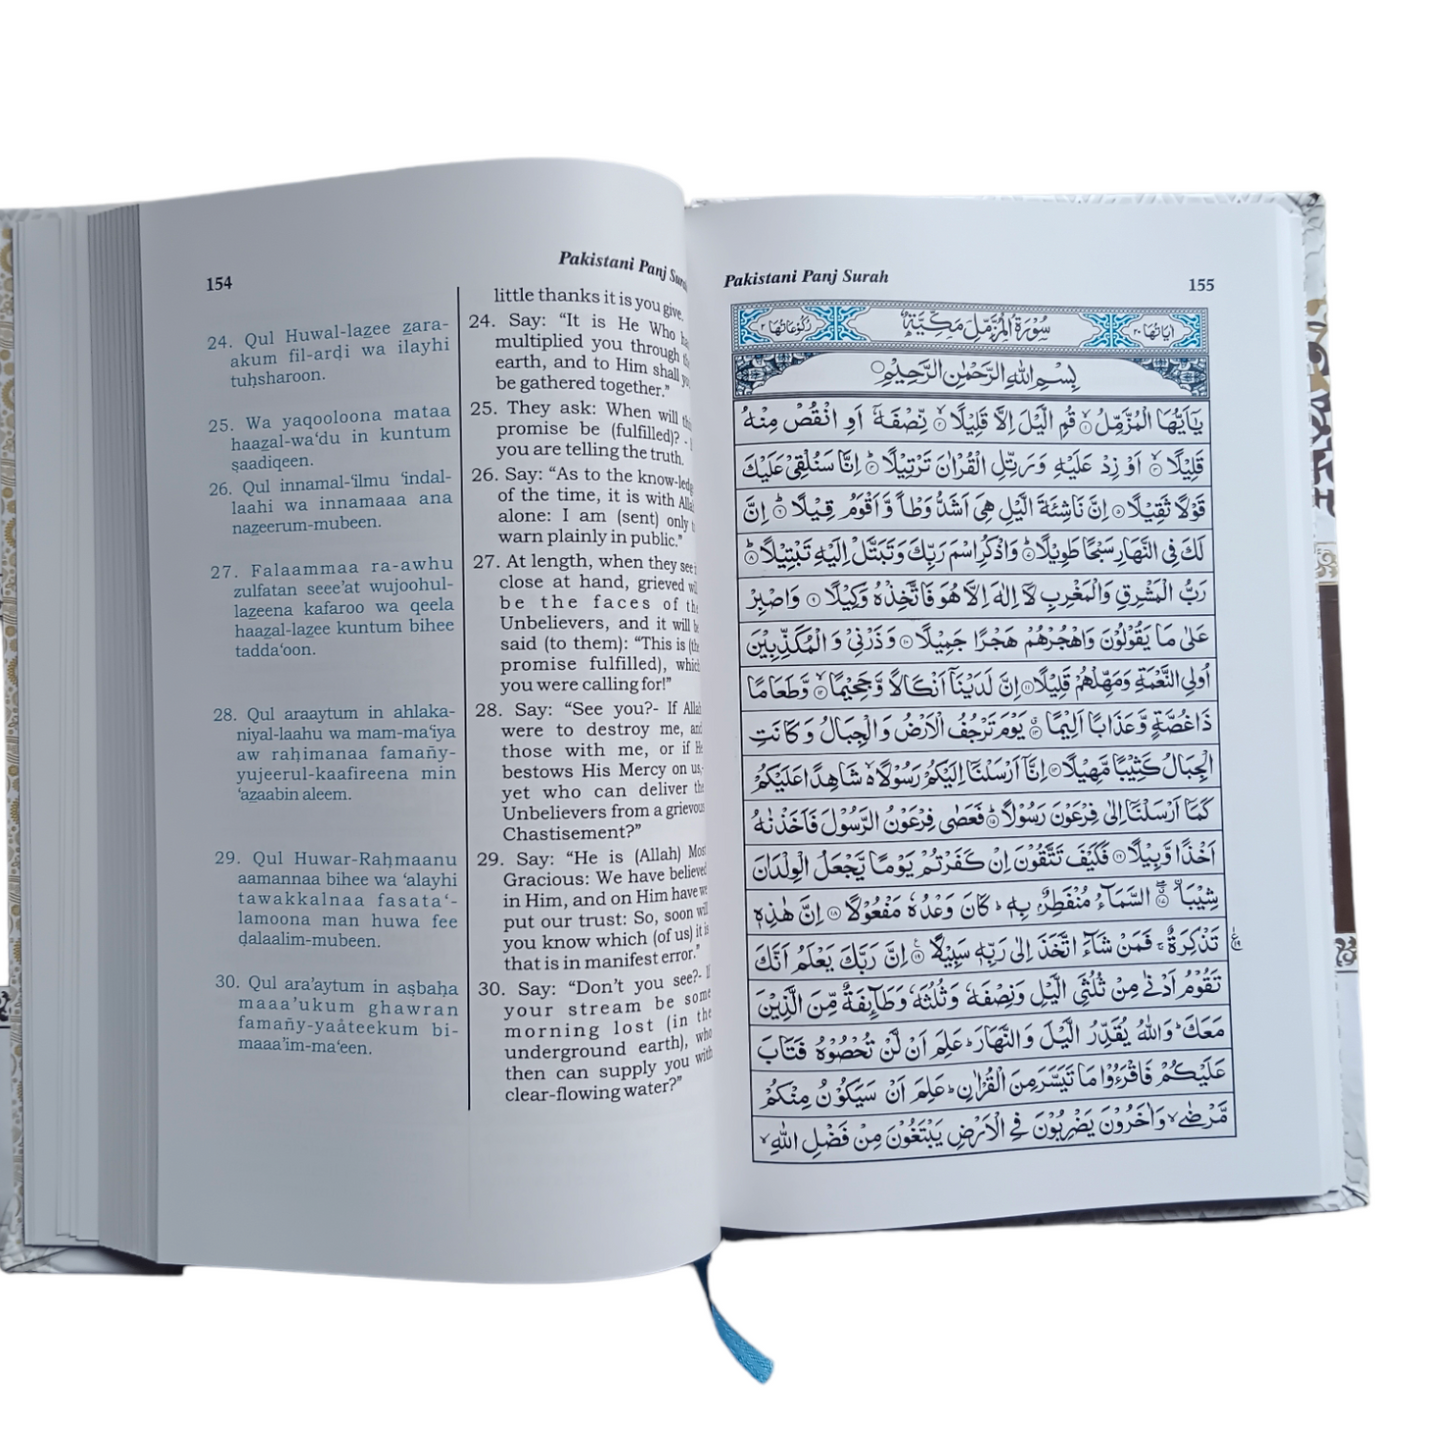 154
Pakistani Panj
24. Qul Huwal-lazee zara-
akum fil-arḍi wa ilayhi
tuḥsharoon.
25. Wa yaqooloona mataa
haazal-wa‘du in kuntum
ṣaadiqeen.
26. Qul innamal-‘ilmu ‘indal-
laahi wa innamaaa ana
nazeerum-mubeen.
27. Falaammaa ra-awhu
zulfatan seee’at wujoohul-
lazeena kafaroo wa qeela
haazal-lazee kuntum bihee
tadda‘oon.
28. Qul araaytum in ahlaka-
niyal-laahu wa mam-ma‘iya
aw raḥimanaa famañy-
yujeerul-kaafireena min
‘azaabin aleem.
29. Qul Huwar-Raḥmaanu
aamannaa bihee wa ‘alayhi
tawakkalnaa fasata‘-
lamoona man huwa fee
ḍalaalim-mubeen.
30. Qul ara’aytum in aṣbaḥa
maaa’ukum ghawran
famañy-yaåteekum bi-
maaa’im-ma‘een.
little thanks it is you give.
24. Say: “It is He Who
multiplied you through
earth, and to Him shall
be gathered together.”
25. They ask: When will
promise be (fulfilled)? -
you are telling the truth.
26. Say: “As to the know-ledge
of the time, it is with Allah
alone: I am (sent) only
warn plainly in public.”
27. At length, when they see
close at hand, grieved
be the faces of
Unbelievers, and it will
said (to them): “This is
promise fulfilled), which
you were calling for!”
28. Say: “See you?- If Allah
were to destroy me, and
those with me, or if
bestows His Mercy on us,-
yet who can deliver
Unbelievers from a grievous
Chastisement?”
29. Say: “He is (Allah) Most
Gracious: We have believed
in Him, and on Him have we
put our trust: So, soon will
you know which (of us) it is
that is in manifest error.”
30. Say: “Don’t you see?-
your stream be some
morning lost (in the
underground earth), who
then can supply you with
clear-flowing water?”
Pakistani Panj Surah
155
اٰیَاتُهَا ٢٠ سُوْرَةُ الْمُزَّمِّلِ مَكِّيَّةٌ رُكُوْعَاتُهَا ٢
بِسْمِ اللّٰهِ الرَّحْمٰنِ الرَّحِيْمِ
يٰٓاَيُّهَا الْمُزَّمِّلُ ۙ‏١ قُمِ الَّيْلَ اِلَّا قَلِيْلًا ۙ‏٢ نِّصْفَهٗٓ اَوِ انْقُصْ مِنْهُ
قَلِيْلًا ۙ‏٣ اَوْ زِدْ عَلَيْهِ وَرَتِّلِ الْقُرْاٰنَ تَرْتِيْلًا ؕ‏٤ اِنَّا سَنُلْقِيْ عَلَيْكَ
قَوْلًا ثَقِيْلًا ‏٥ اِنَّ نَاشِئَةَ الَّيْلِ هِيَ اَشَدُّ وَطْاً وَّاَقْوَمُ قِيْلًا ؕ‏٦ اِنَّ
لَكَ فِى النَّهَارِ سَبْحًا طَوِيْلًا ؕ‏٧ وَاذْكُرِ اسْمَ رَبِّكَ وَتَبَتَّلْ اِلَيْهِ تَبْتِيْلًا ؕ‏٨
رَبُّ الْمَشْرِقِ وَالْمَغْرِبِ لَآ اِلٰهَ اِلَّا هُوَ فَاتَّخِذْهُ وَكِيْلًا ‏٩ وَاصْبِرْ
عَلٰى مَا يَقُوْلُوْنَ وَاهْجُرْهُمْ هَجْرًا جَمِيْلًا ‏١٠ وَذَرْنِيْ وَالْمُكَذِّبِيْنَ
اُولِى النَّعْمَةِ وَمَهِّلْهُمْ قَلِيْلًا ‏١١ اِنَّ لَدَيْنَآ اَنْكَالًا وَّجَحِيْمًا ۙ‏١٢ وَّطَعَامًا
ذَا غُصَّةٍ وَّعَذَابًا اَلِيْمًا ‏١٣ يَوْمَ تَرْجُفُ الْاَرْضُ وَالْجِبَالُ وَكَانَتِ
الْجِبَالُ كَثِيْبًا مَّهِيْلًا ‏١٤ اِنَّآ اَرْسَلْنَآ اِلَيْكُمْ رَسُوْلًا ۙ۬ شَاهِدًا عَلَيْكُمْ
كَمَآ اَرْسَلْنَآ اِلٰى فِرْعَوْنَ رَسُوْلًا ؕ‏١٥ فَعَصٰى فِرْعَوْنُ الرَّسُوْلَ فَاَخَذْنٰهُ
اَخْذًا وَّبِيْلًا ‏١٦ فَكَيْفَ تَتَّقُوْنَ اِنْ كَفَرْتُمْ يَوْمًا يَّجْعَلُ الْوِلْدَانَ
شِيْبَا ‏١٧ السَّمَآءُ مُنْفَطِرٌۢ بِهٖ ؕ كَانَ وَعْدُهٗ مَفْعُوْلًا ‏١٨ اِنَّ هٰذِهٖ
تَذْكِرَةٌ ۚ فَمَنْ شَآءَ اتَّخَذَ اِلٰى رَبِّهٖ سَبِيْلًا ‏١٩ اِنَّ رَبَّكَ يَعْلَمُ اَنَّكَ
تَقُوْمُ اَدْنٰى مِنْ ثُلُثَىِ الَّيْلِ وَنِصْفَهٗ وَثُلُثَهٗ وَطَآئِفَةٌ مِّنَ الَّذِيْنَ
مَعَكَ ؕ وَاللّٰهُ يُقَدِّرُ الَّيْلَ وَالنَّهَارَ ؕ عَلِمَ اَنْ لَّنْ تُحْصُوْهُ فَتَابَ
عَلَيْكُمْ فَاقْرَءُوْا مَا تَيَسَّرَ مِنَ الْقُرْاٰنِ ؕ عَلِمَ اَنْ سَيَكُوْنُ مِنْكُمْ
مَّرْضٰى ۙ وَاٰخَرُوْنَ يَضْرِبُوْنَ فِى الْاَرْضِ يَبْتَغُوْنَ مِنْ فَضْلِ اللّٰهِ ۙ